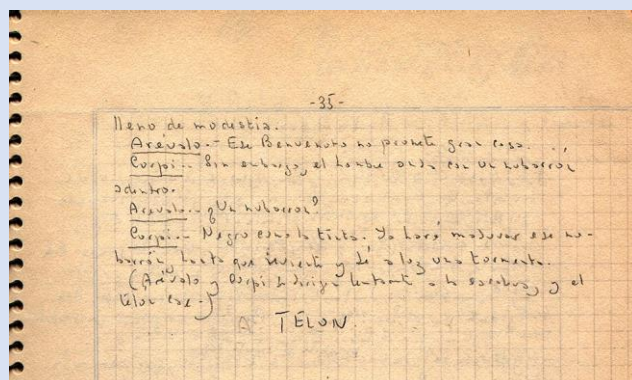 -35-
lleno de modestia.
Arévalo.- Ese Benvenuto no promete gran cosa.
Corpi.- Sin embargo, el hombre anda con un nubarrón
adentro.
Arévalo.- ¿Un nubarrón?
Corpi.- Negro como la tinta. Yo haré madurar ese nu-
barrón, hasta que reviente y dé a luz una tormenta.
(Arévalo y Corpi se dirigen a la escalera, y el
telón cae.)
TELON